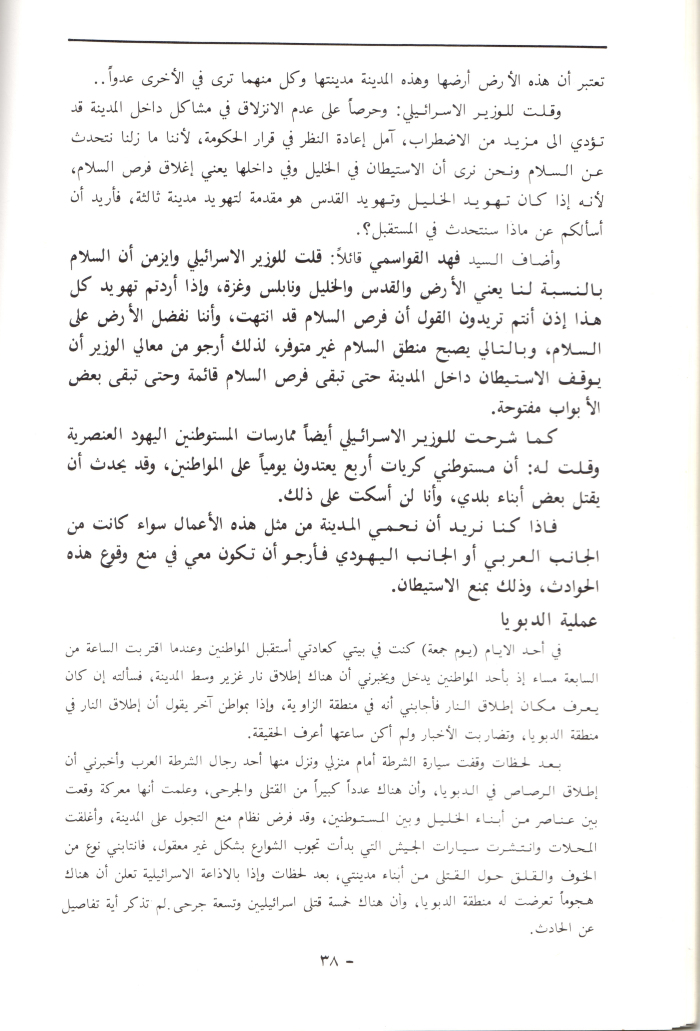 تعتبر أن هذه الأرض أرضها وهذه المدينة مدينتها وكل منهما ترى في الأخرى عدواً..
وقلت للوزير الاسرائيلي: وحرصاً على عدم الانزلاق في مشاكل داخل المدينة قد
تؤدي الى مزيد من الاضطراب، آمل إعادة النظر في قرار الحكومة، لأننا ما زلنا نتحدث
عن السلام ونحن نرى أن الاستيطان في الخليل وفي داخلها يعني إغلاق فرص السلام،
لأنه إذا كان تهويد الخليل وتهويد القدس هو مقدمة لتهويد مدينة ثالثة، فأريد أن
أسألكم عن ماذا سنتحدث في المستقبل؟.
وأضاف السيد فهد القواسمي قائلاً: قلت للوزير الاسرائيلي وايزمن أن السلام
بالنسبة لنا يعني الأرض والقدس والخليل ونابلس وغزة، وإذا أردتم تهويد كل
هذا إذن أنتم تريدون القول أن فرص السلام قد انتهت، وأننا نفضل الأرض على
السلام، وبالتالي يصبح منطق السلام غير متوفر، لذلك أرجو من معالي الوزير أن
يوقف الاستيطان داخل المدينة حتى تبقى فرص السلام قائمة وحتى تبقى بعض
الأبواب مفتوحة.
كما شرحت للوزير الاسرائيلي أيضاً ممارسات المستوطنين اليهود العنصرية
وقلت له: أن مستوطني كريات أربع يعتدون يومياً على المواطنين، وقد يحدث أن
يقتل بعض أبناء بلدي، وأنا لن أسكت على ذلك.
فاذا كنا نريد أن نحمي المدينة من مثل هذه الأعمال سواء كانت من
الجانب العربي أو الجانب اليهودي فأرجو أن تكون معي في منع وقوع هذه
الحوادث، وذلك بمنع الاستيطان.
عملية الدبويا
في أحد الايام (يوم جمعة) كنت في بيتي كعادتي أستقبل المواطنين وعندما اقتربت الساعة من
السابعة مساء إذ بأحد المواطنين يدخل ويخبرني أن هناك إطلاق نار غزير وسط المدينة، فسألته إن كان
يعرف مكان إطلاق النار فأجابني أنه في منطقة الزاوية، وإذا بمواطن آخر يقول أن إطلاق النار في
منطقة الدبويا، وتضاربت الأخبار ولم أكن ساعتها أعرف الحقيقة.
بعد لحظات وقفت سيارة الشرطة أمام منزلي ونزل منها أحد رجال الشرطة العرب وأخبرني أن
إطلاق الرصاص في الدبويا، وأن هناك عدداً كبيراً من القتلى والجرحى، وعلمت أنها معركة وقعت
بين عناصر من أبناء الخليل وبين المستوطنين، وقد فرض نظام منع التجول على المدينة، وأغلقت
المحلات وانتشرت سيارات الجيش التي بدأت تجوب الشوارع بشكل غير معقول، فانتابني نوع من
الخوف والقلق حول القتلى من أبناء مدينتي، بعد لحظات وإذا بالاذاعة الاسرائيلية تعلن أن هناك
هجوماً تعرضت له منطقة الدبويا، وأن هناك خمسة قتلى اسرائيليين وتسعة جرحى. لم تذكر أية تفاصيل
عن الحادث.
- ٣٨